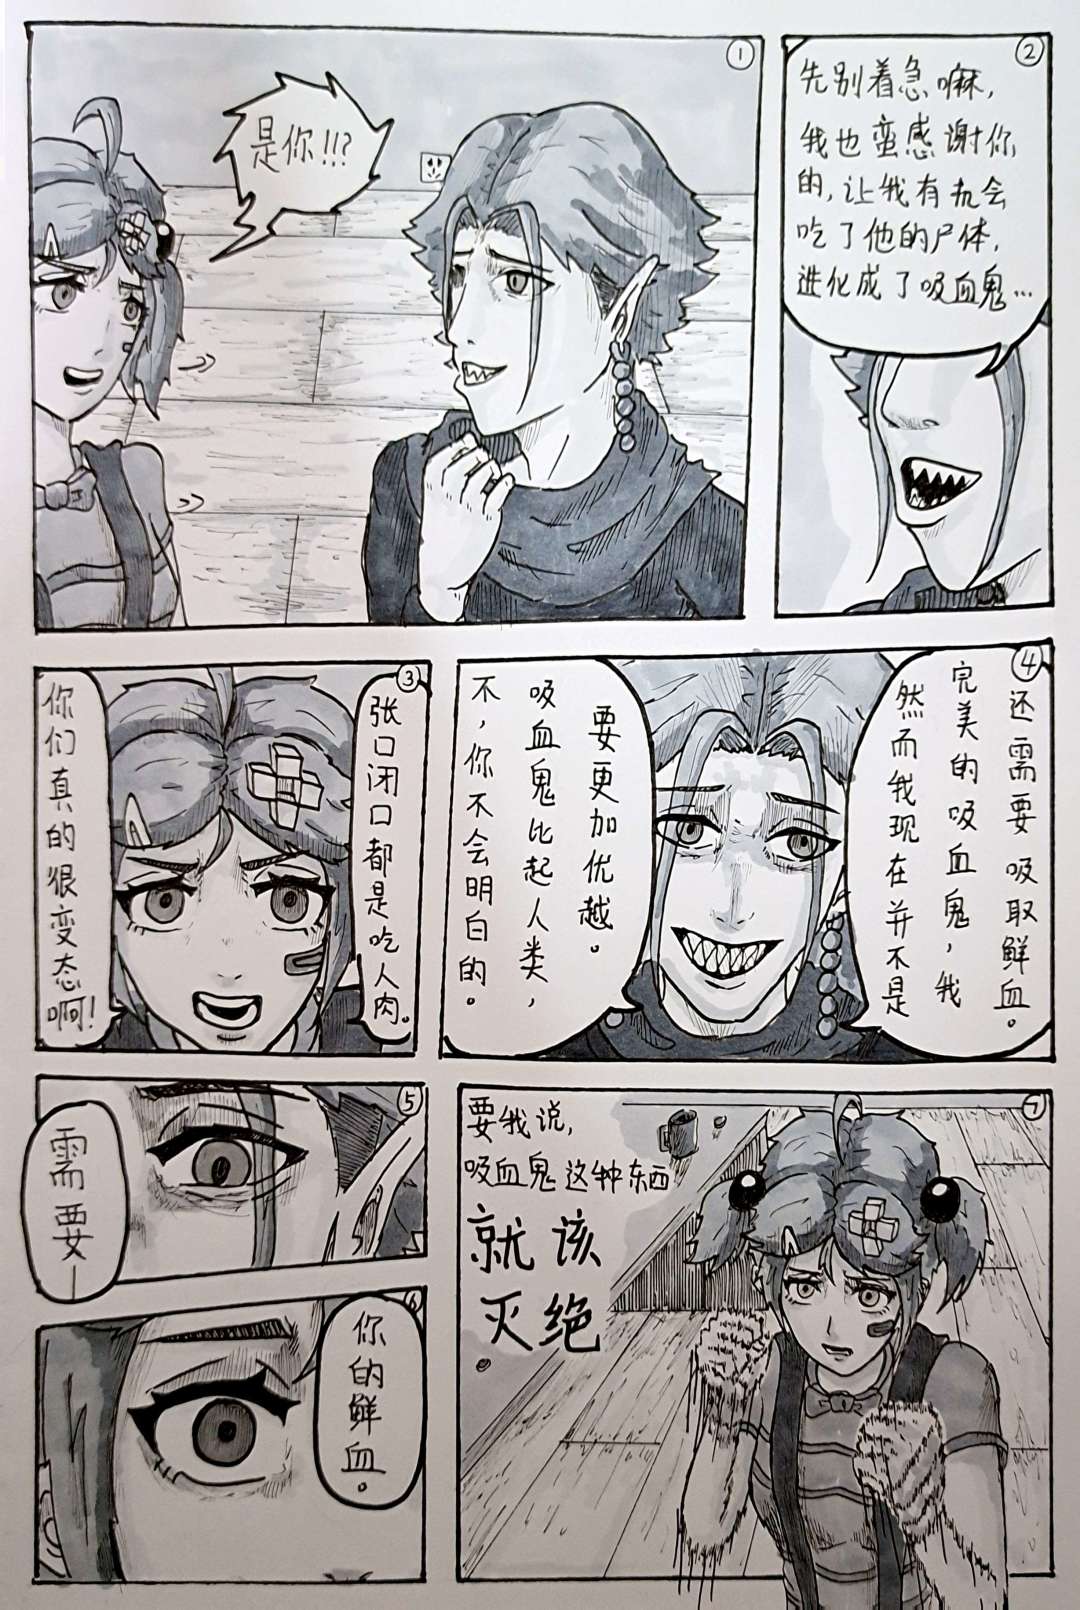 ①
是你!!!?
②
先别着急嘛，
我也蛮感谢你
的，让我有机会
吃了他的尸体，
进化成了吸血鬼…
③
张口闭口都是吃人肉。
你们真的很变态啊！
④
还需要吸取鲜血。
完美的吸血鬼，我
然而我现在并不是
要更加优越。
吸血鬼比起人类，
不，你不会明白的。
⑤
需要—
⑥
你的鲜血。
⑦
要我说，
吸血鬼这种东西
就该
灭绝。